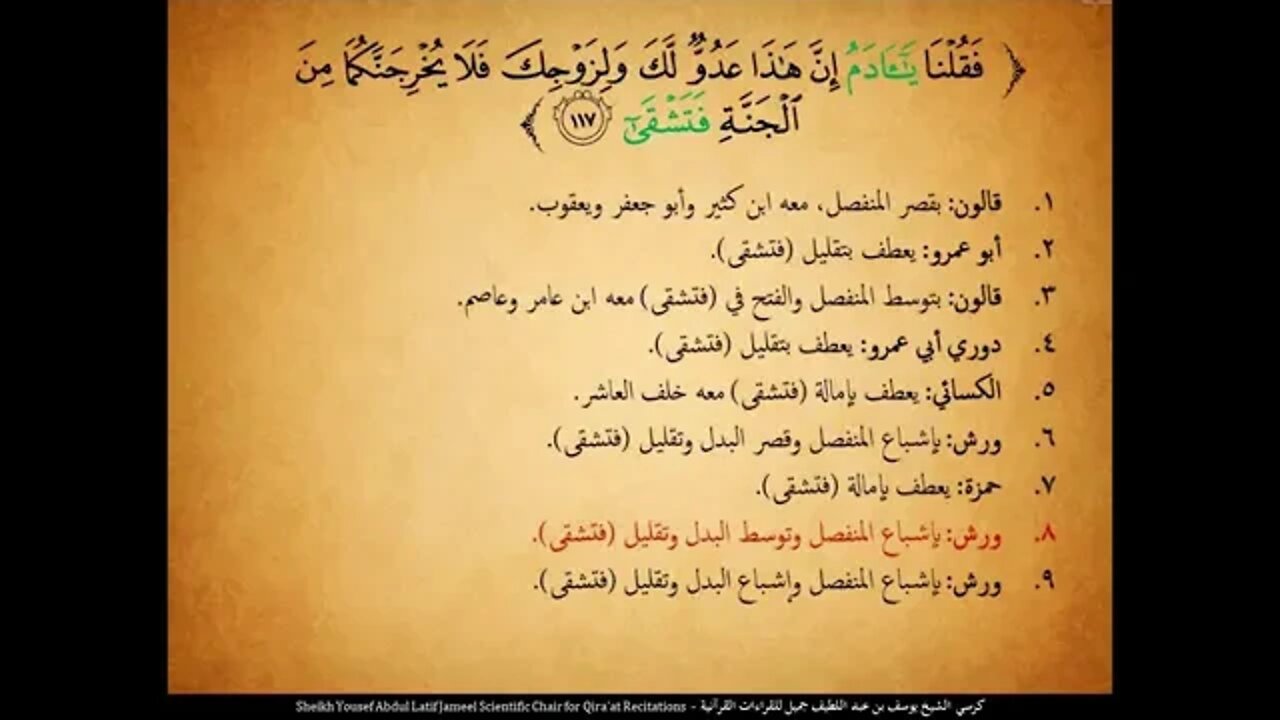 ﴿ فَقُلْنَا يَـٰٓـَٔادَمُ إِنَّ هَـٰذَا عَدُوٌّ لَّكَ وَلِزَوْجِكَ فَلَا يُخْرِجَنَّكُمَا مِنَ
ٱلْجَنَّةِ فَتَشْقَىٰٓ ١١٧ ﴾
١. قالون: بقصر المنفصل، معه ابن كثير وأبو جعفر ويعقوب.
٢. أبو عمرو: يعطف بتقليل (فتشقى).
٣. قالون: بتوسط المنفصل والفتح في (فتشقى) معه ابن عامر وعاصم.
٤. دوري أبي عمرو: يعطف بتقليل (فتشقى).
٥. الكسائي: يعطف بإمالة (فتشقى) معه خلف العاشر.
٦. ورش: بإشباع المنفصل وقصر البدل وتقليل (فتشقى).
٧. حمزة: يعطف بإمالة (فتشقى).
٨. ورش: بإشباع المنفصل وتوسط البدل وتقليل (فتشقى).
٩. ورش: بإشباع المنفصل وإشباع البدل وتقليل (فتشقى).
كرسي الشيخ يوسف بن عبد اللطيف جميل للقراءات القرآنية - Sheikh Yousef Abdul Latif Jameel Scientific Chair for Qira'at Recitations